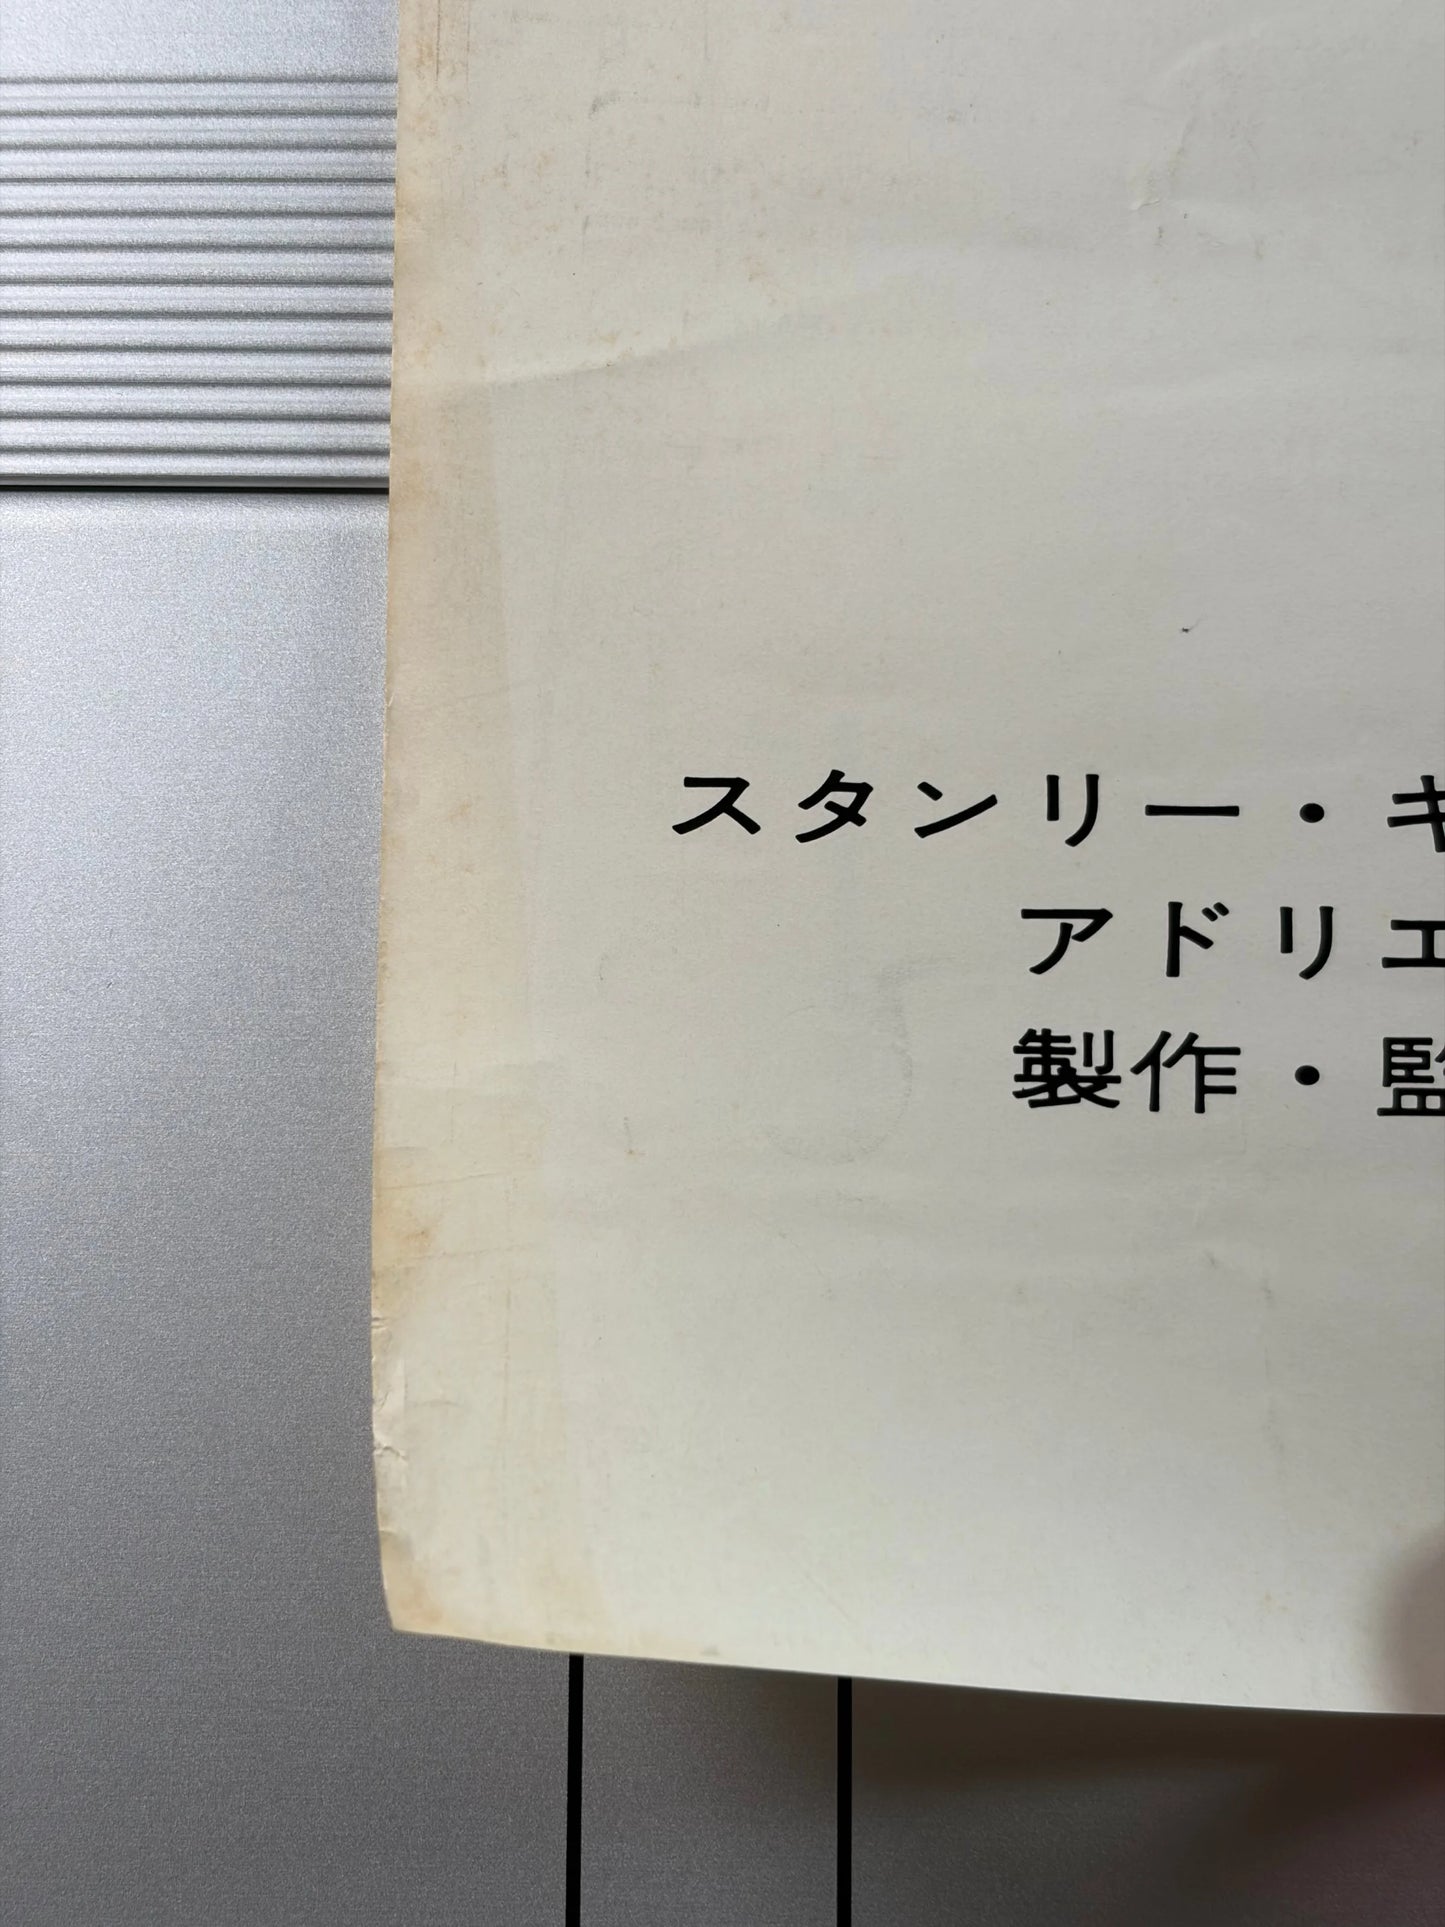 スタンリー・キ
アドリエ
製作・監